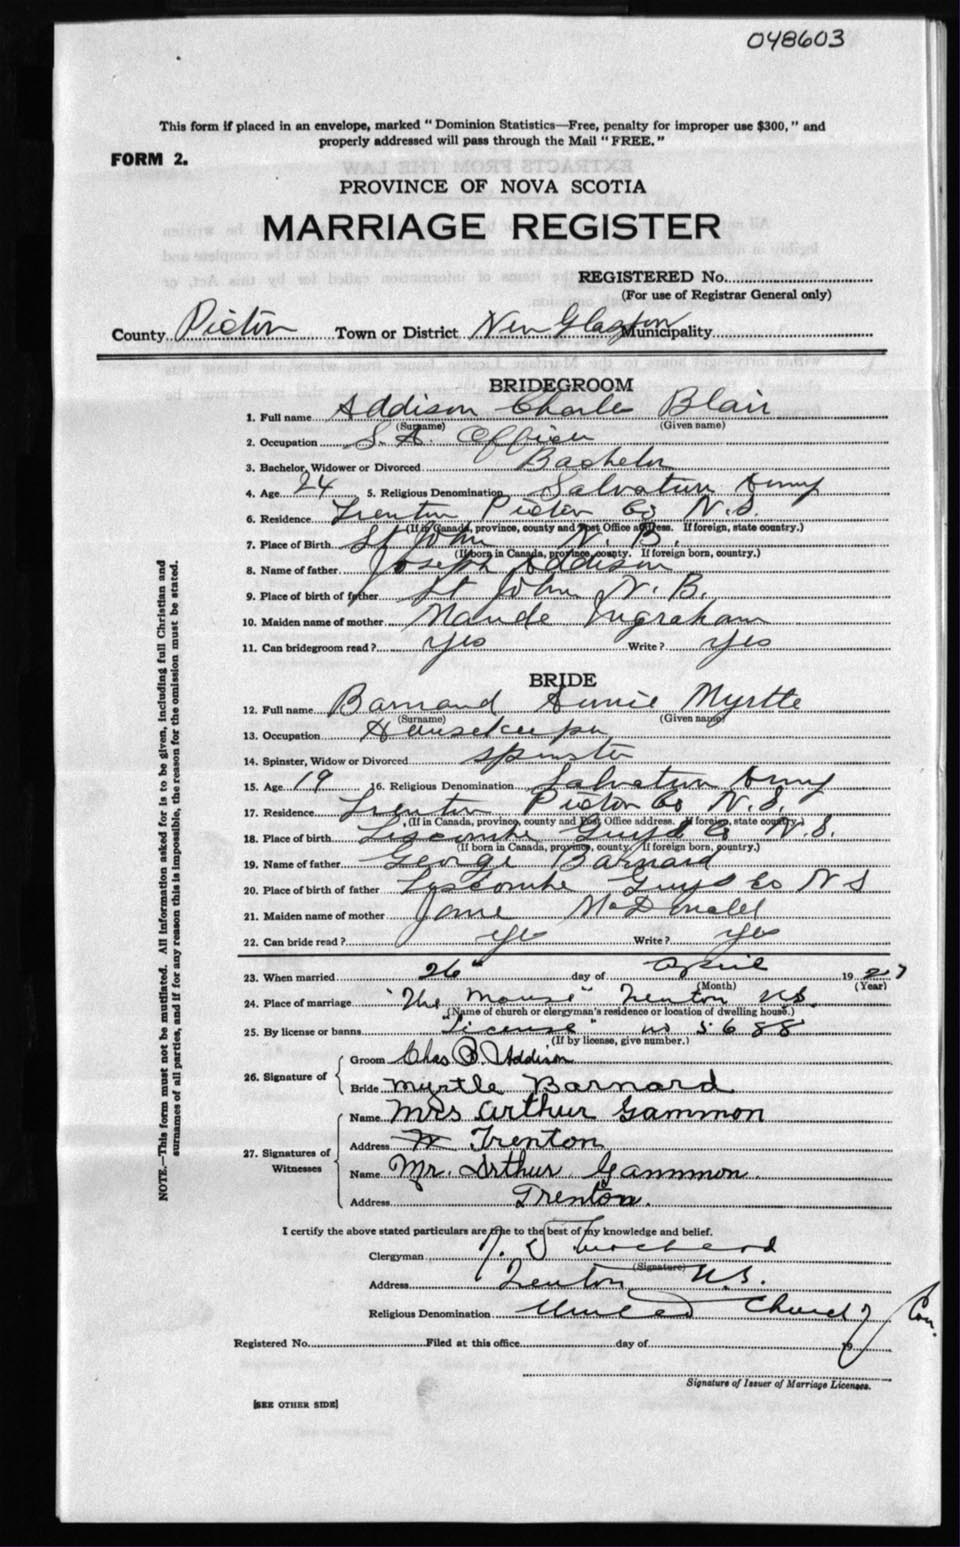 048603
This form if placed in an envelope, marked "Dominion Statistics—Free, penalty for improper use $300," and
properly addressed will pass through the Mail "FREE."
FORM 2.
PROVINCE OF NOVA SCOTIA
MARRIAGE REGISTER
REGISTERED No.
(For use of Registrar General only)
County Pictou Town or District New Glasgow Municipality
BRIDEGROOM
1. Full name Addison Charle Blair
(Surname) (Given name)
2. Occupation S. A. Officer
3. Bachelor, Widower or Divorced Bachelor
4. Age 24 5. Religious Denomination Salvation Army
6. Residence Trenton Pictou Co N.S.
(If in Canada, province, county and Post Office address. If foreign, state country.)
7. Place of Birth St John N. B.
(If born in Canada, province, county. If foreign born, country.)
8. Name of father Joseph Addison
9. Place of birth of father St John N. B.
10. Maiden name of mother Maude Ingraham
11. Can bridegroom read? yes Write? yes
BRIDE
12. Full name Barnard Annie Myrtle
(Surname) (Given name)
13. Occupation Housekeeper
14. Spinster, Widow or Divorced Spinster
15. Age 19 16. Religious Denomination Salvation Army
17. Residence Trenton Pictou Co N.S.
(If in Canada, province, county and Post Office address. If foreign, state country.)
18. Place of birth Liscombe Guysd Co N.S.
(If born in Canada, province, county. If foreign born, country.)
19. Name of father George Barnard
20. Place of birth of father Liscombe Guys Co N S
21. Maiden name of mother Jane McDonald
22. Can bride read? yes Write? yes
23. When married 26" day of April 1927
(Month) (Year)
24. Place of marriage "The Manse" Trenton N.S.
(Name of church or clergyman's residence or location of dwelling house.)
25. By license or banns "License" no 5688
(If by license, give number.)
26. Signature of
Groom Chas B. Addison
Bride Myrtle Barnard
27. Signatures of Witnesses
Name Mrs Arthur Gammon
Address Trenton
Name Mr. Arthur Gammon
Address Trenton.
I certify the above stated particulars are true to the best of my knowledge and belief.
Clergyman
(Signature)
Address Trenton N.S.
Religious Denomination United Church of Can.
Registered No. Filed at this office day of 19
Signature of Issuer of Marriage Licenses.
[SEE OTHER SIDE]
NOTE.—This form must not be mutilated. All information asked for is to be given, including full Christian and
surnames of all parties, and if for any reason this is impossible, the reason for the omission must be stated.